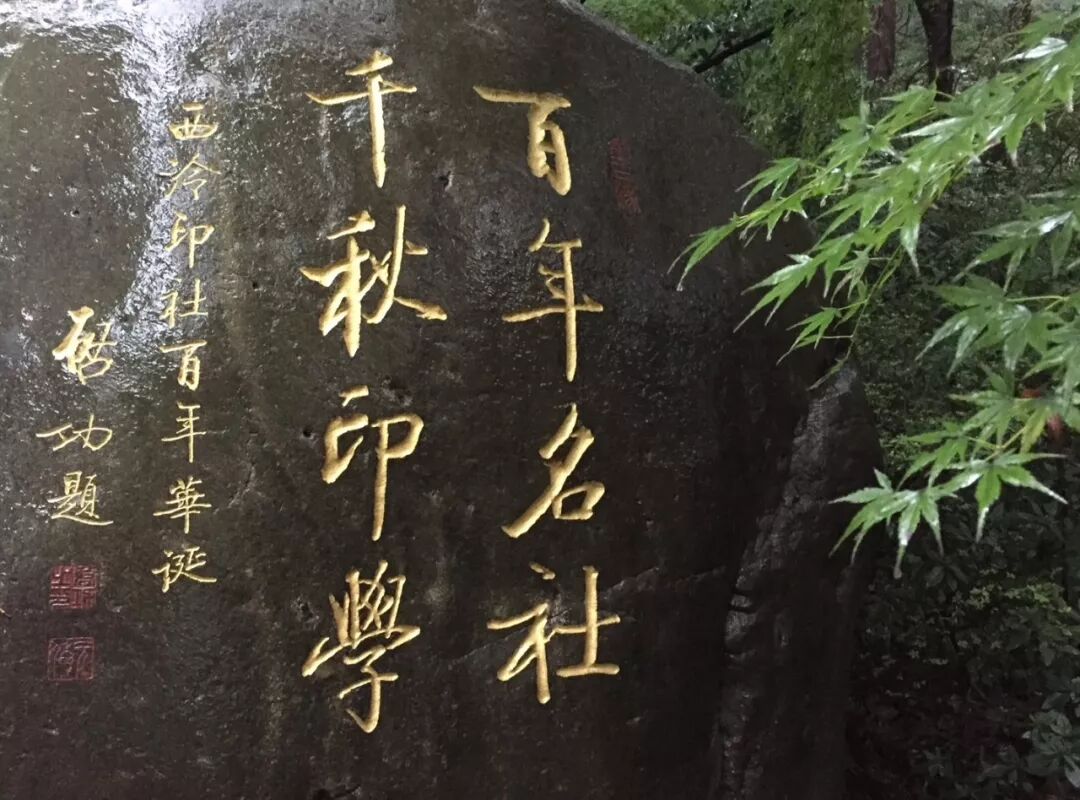 百年名社
千秋印學
西泠印社百年華誕
启功題